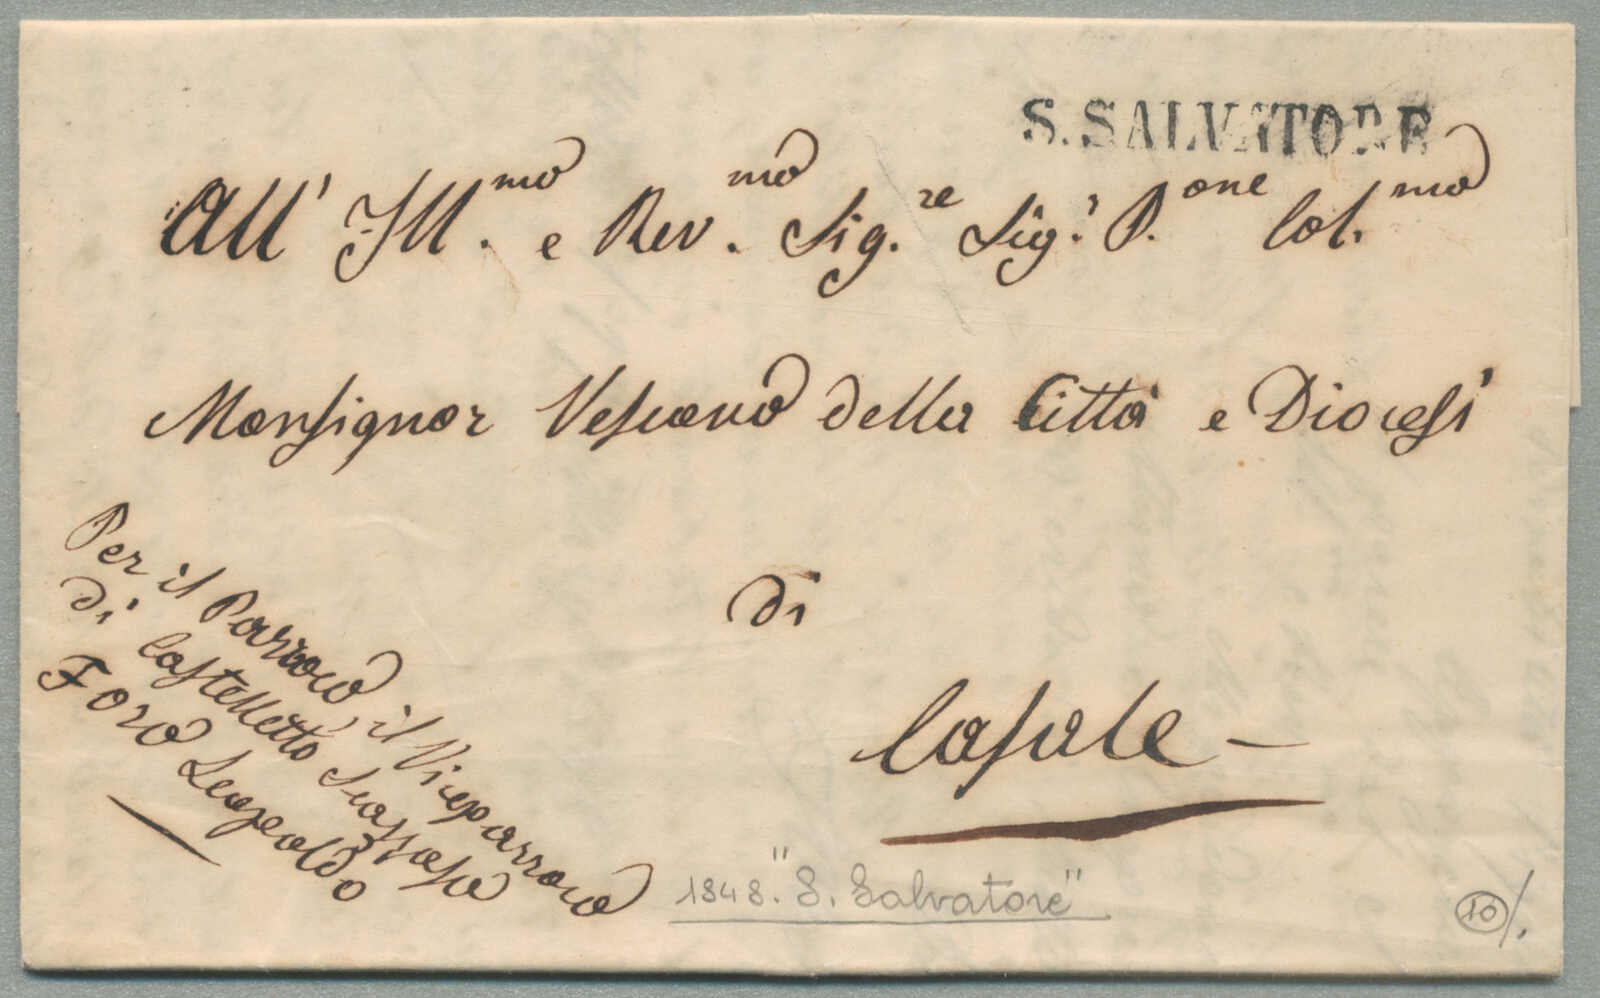 S. SALVATORE
All' Ill.mo e Rev.mo Sig.re Sig.r P.one Col.mo
Monsignor Vescovo della Città e Diocesi
di
Casale -
Per il Parroco, il Viceparroco
di Castelletto Scazzoso
Foro Leopoldo
1848. "S. Salvatore"
10/.